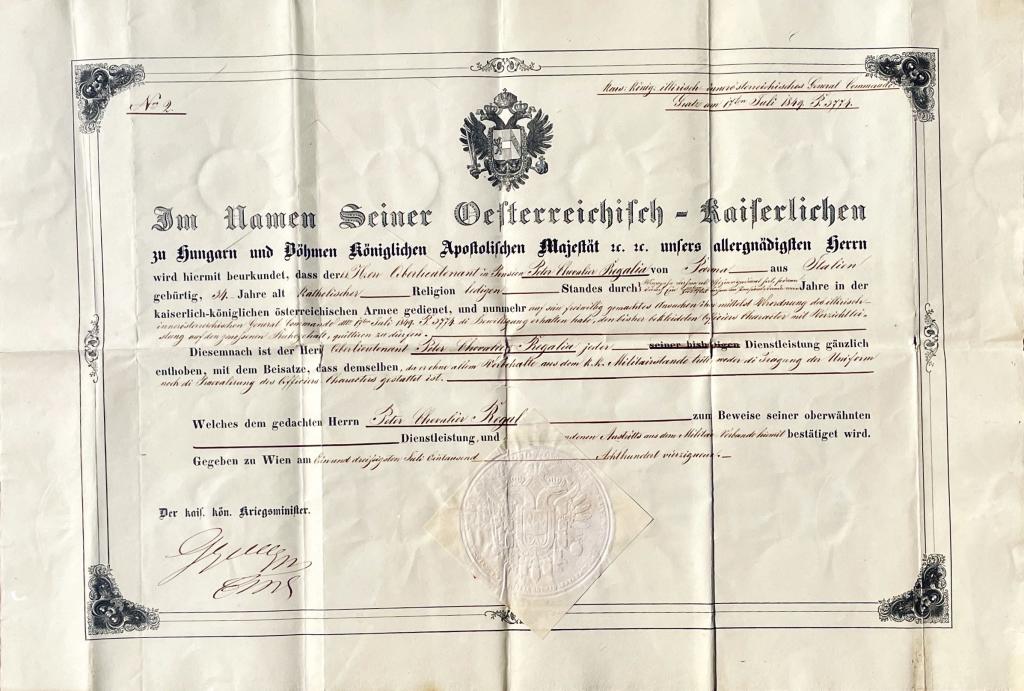 No 2
kais. könig. illirisch-innerösterreichisches General Commando
Gratz am 17ten Juli 1849. P. 3774.
Im Namen Seiner Oesterreichisch-Kaiserlichen
zu Hungarn und Böhmen Königlichen Apostolischen Majestät ꝛc. ꝛc. unsers allergnädigsten Herrn
wird hiermit beurkundet, dass der Herr Oberlieutenant in Pension Peter Chevalier Regalia von Parma aus Italien
gebürtig, 34 Jahre alt katholischer Religion ledigen Standes durch Jahre in der
kaiserlich-königlichen österreichischen Armee gedient, und nunmehr auf sein freiwillig gemachtes Ansuchen mittelst Verordnung des illirisch-
innerösterreichischen General Commando 17ten Juli 1849. P. 3774 die Bewilligung erhalten habe, den bisher bekleideten Officiers Character mit Verzichtlei-
stung auf den Ruhegehalt, quittiren zu dürfen.
Diesemnach ist der Herr Oberlieutenant Peter Chevalier Regalia jeder seiner bisherigen Dienstleistung gänzlich
enthoben, mit dem Beisatze, dass demselben, da er ohne allem Vorbehalte aus dem k. k. Militairstande tritt weder die Tragung der Uniform
noch die Officiers Characters gestattet ist.
Welches dem gedachten Herrn Peter Chevalier Regal zum Beweise seiner oberwähnten
Dienstleistung, und Austritts aus dem Militär Verbande hiemit bestätiget wird.
Gegeben zu Wien am Einunddreißigsten Juli Eintausend Achthundert vierzigneun.
Der kais. kön. Kriegsminister.